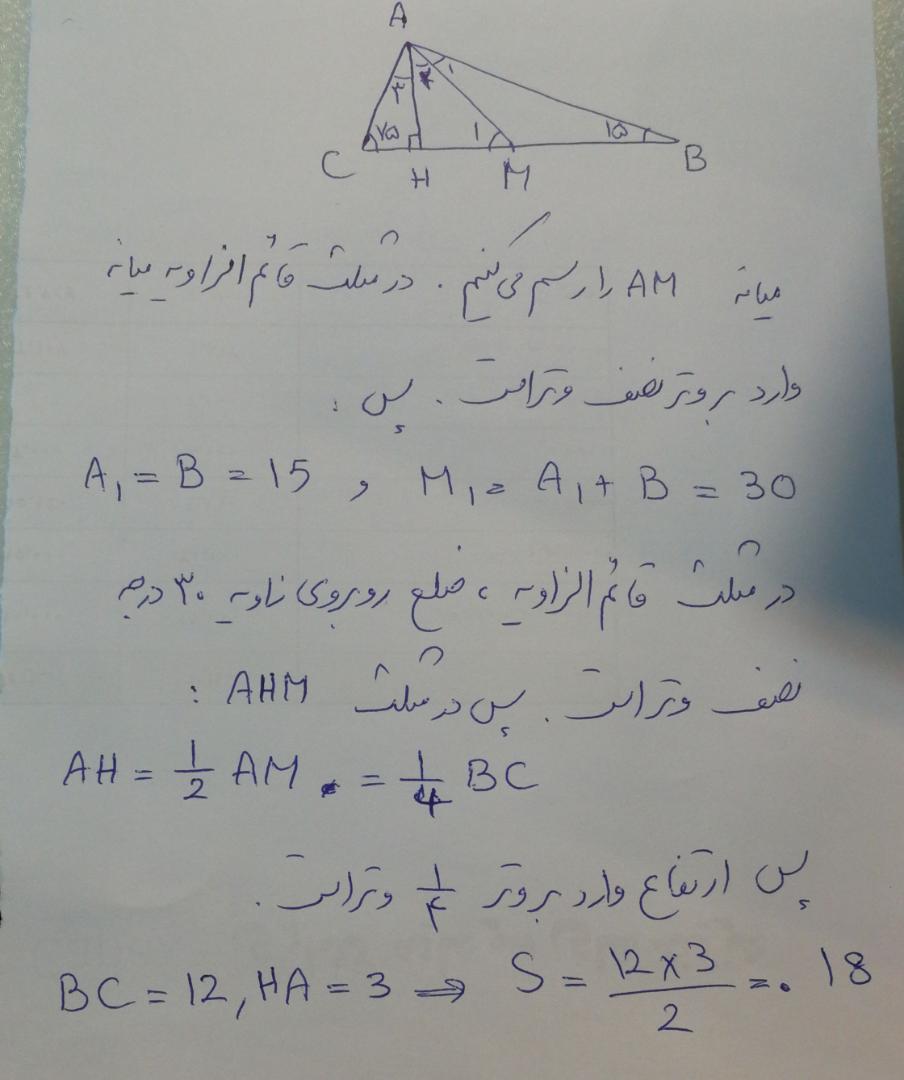 A
۳ ۲ ۱
۷۵ ۱ ۱۵
C H M B
میانه AM را رسم می‌کنیم. در مثلث قائم الزاویه میانه
وارد بر وتر نصف وتر است. پس :
A₁ = B = 15 , M₁ = A₁ + B = 30
در مثلث قائم الزاویه ، ضلع روبروی زاویه ۳۰ درجه
نصف وتر است. پس در مثلث AHM :
AH = 1/2 AM = 1/4 BC
پس ارتفاع وارد بر وتر ۱/۴ وتر است.
BC = 12, HA = 3 ⇒ S = 12×3/2 = 18